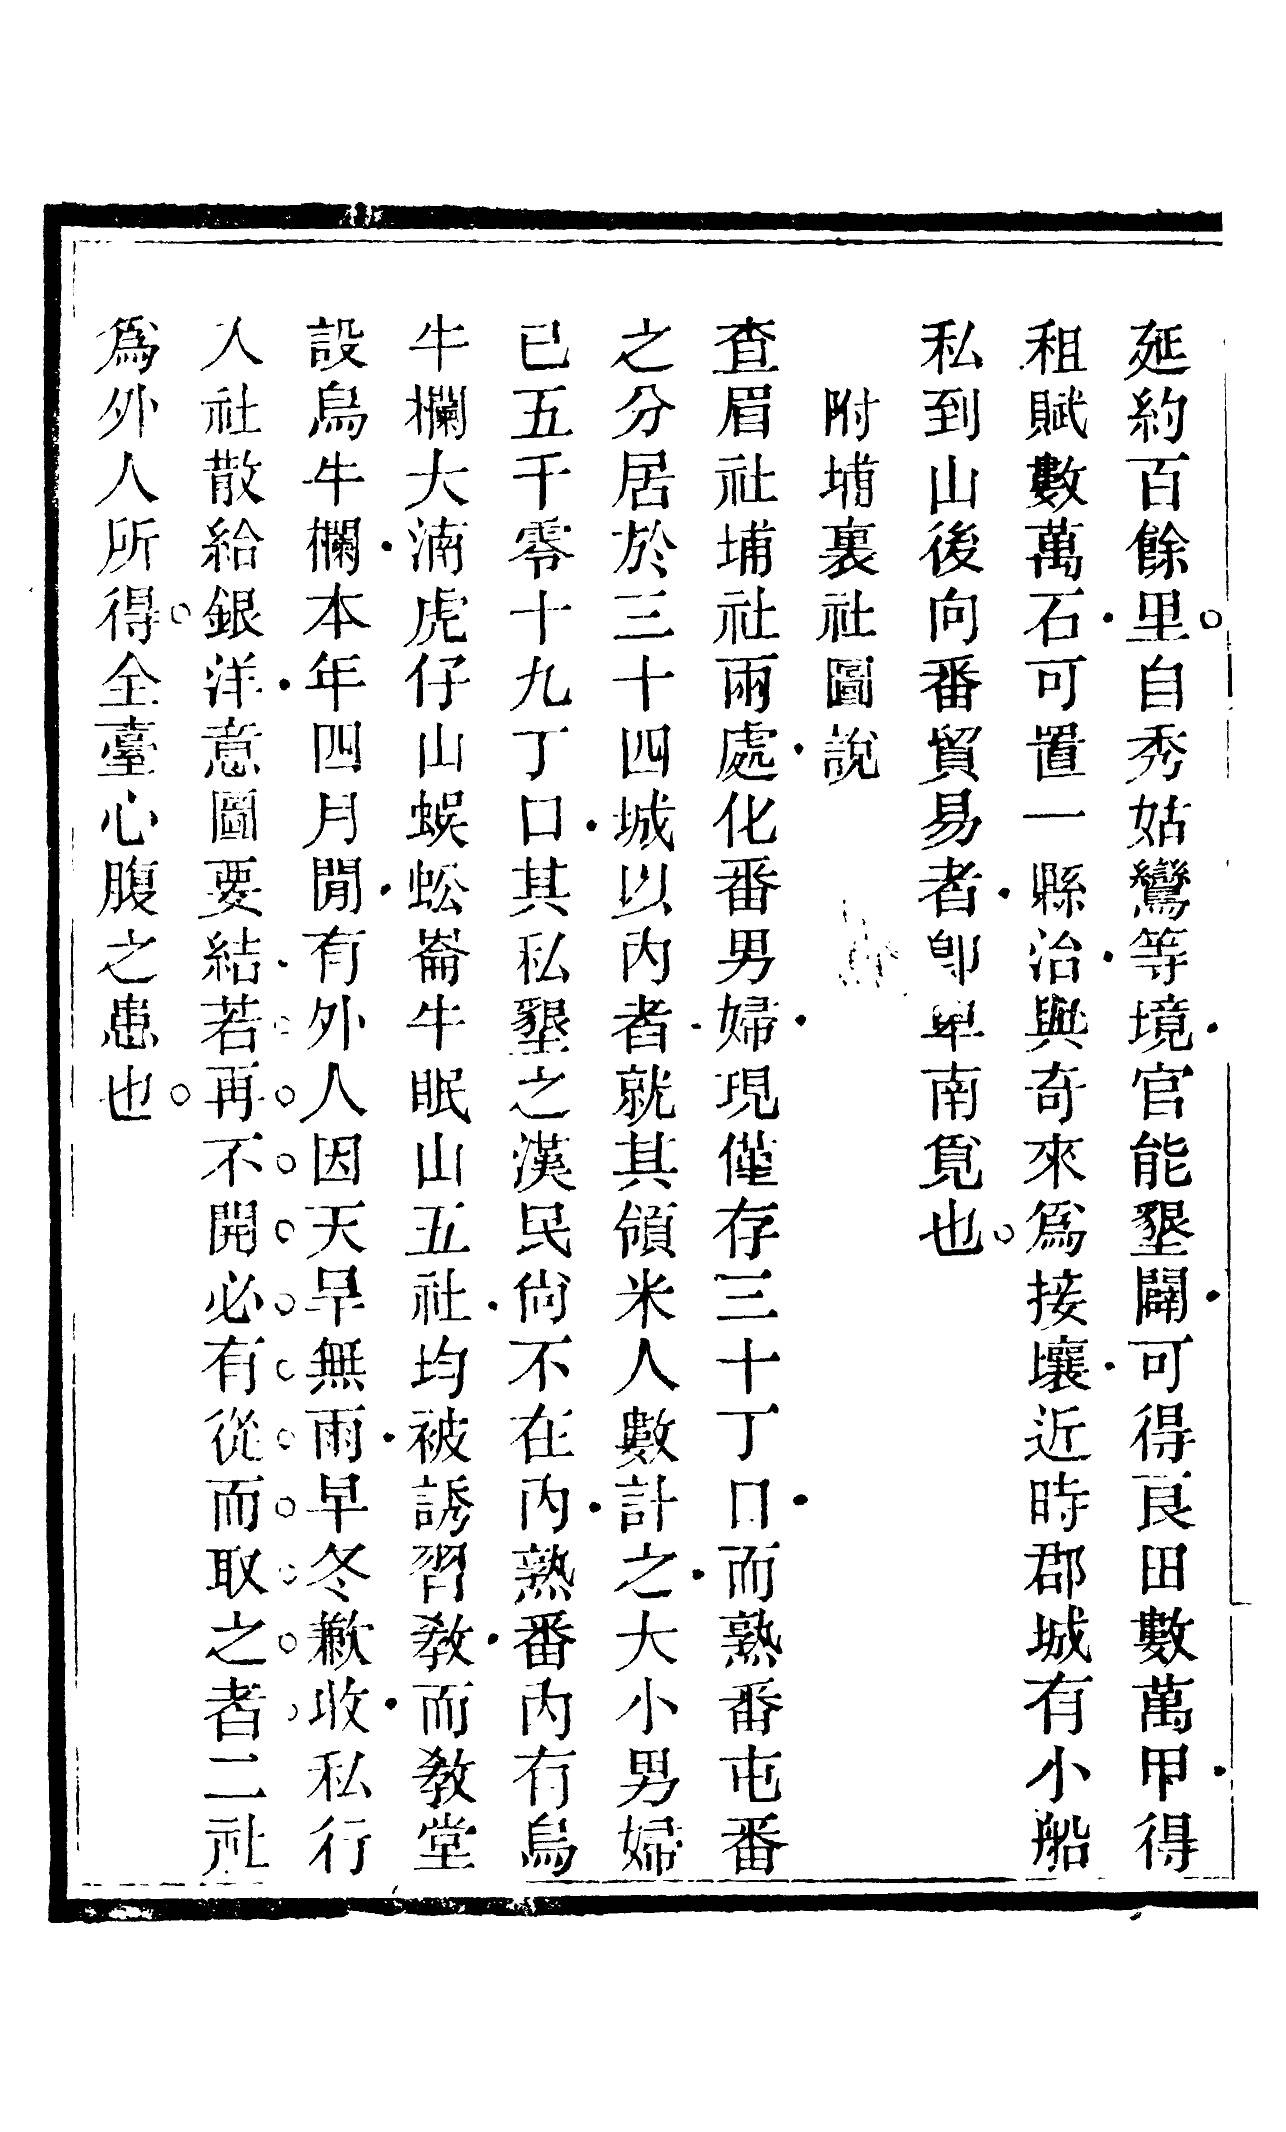 延約百餘里。自秀姑鸞等境官能墾闢可得良田數萬甲得
租賦數萬石可置一縣治與奇來爲接壤近時郡城有小船
私到山後向番貿易者卽卑南覓也。
附埔裏社圖說
查眉社埔社兩處化番男婦現僅存三十丁口而熟番屯番
之分居於三十四城以內者就其領米人數計之大小男婦
已五千零十九丁口其私墾之漢民尙不在內熟番內有烏
牛欄大湳虎仔山蜈蚣崙牛眠山五社均被誘習敎而敎堂
設烏牛欄本年四月閒有外人因天旱無雨早冬歉收私行
入社散給銀洋意圖要結若再不開必有從而取之者二社
爲外人所得。全臺心腹之患也。